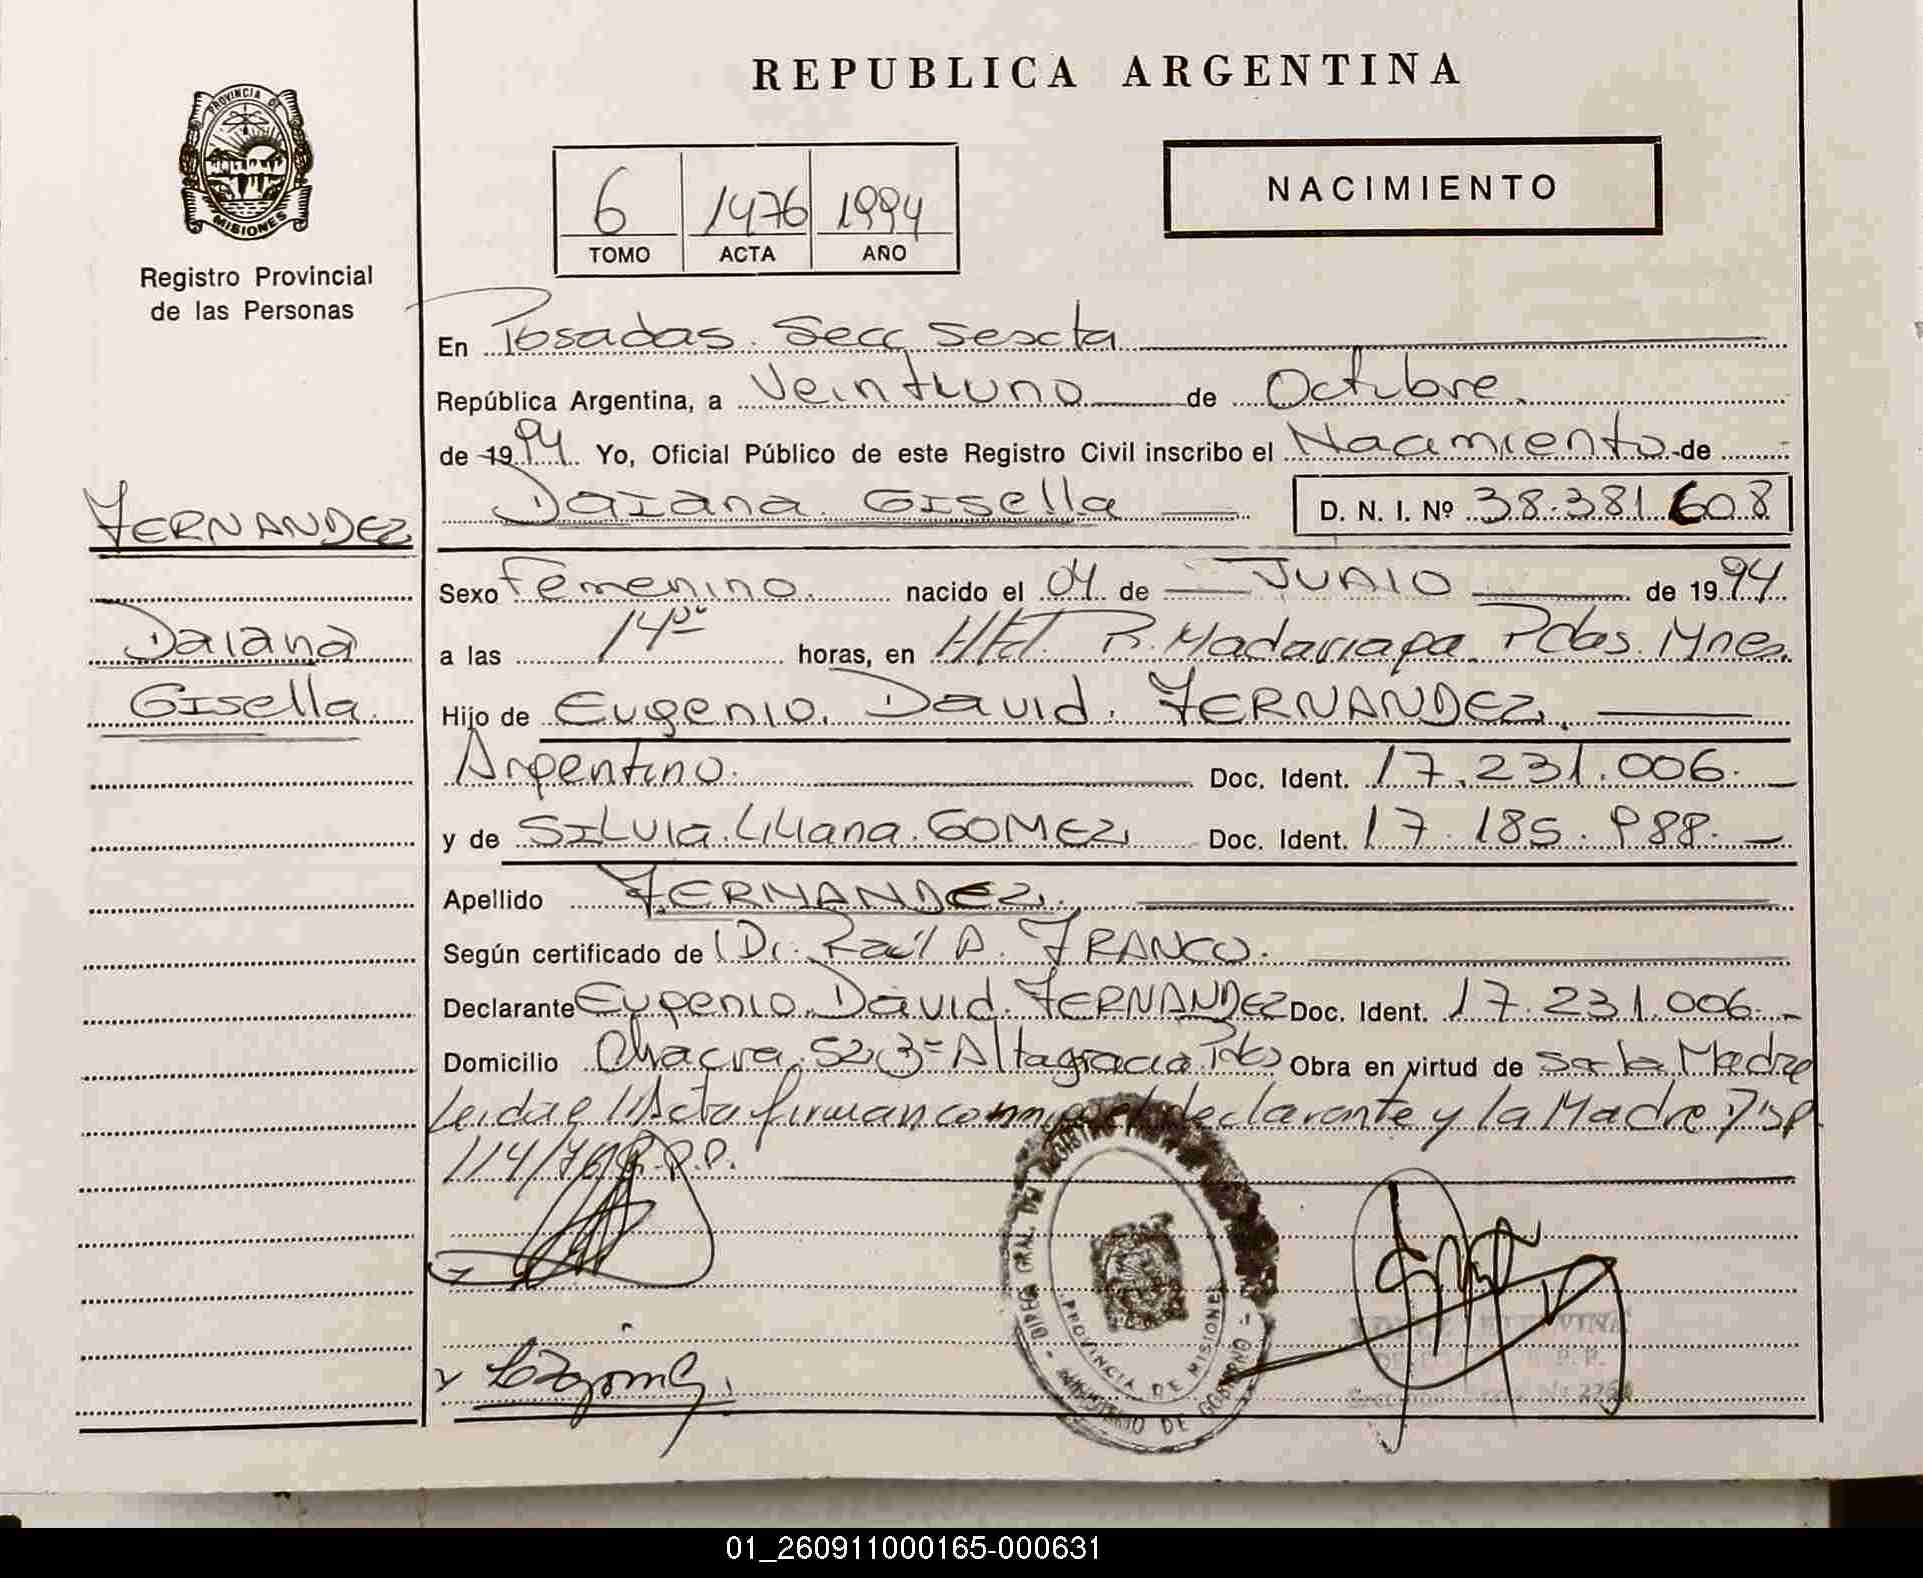 REPUBLICA ARGENTINA
PROVINCIA DE MISIONES
Registro Provincial
de las Personas
NACIMIENTO
6 1476 1994
TOMO ACTA AÑO
En Posadas. Secc Sexta
República Argentina, a Veintiuno de Octubre.
de 1994. Yo, Oficial Público de este Registro Civil inscribo el Nacimiento de
Daiana Gisella D. N. I. Nº 38.381.608
FERNANDEZ
Daiana
Gisella.
Sexo Femenino. nacido el 04 de JUNIO de 1994
a las 14 horas, en R. Madariaga. Pdas. Mnes.
Hijo de Eugenio. David. FERNANDEZ.
Argentino. Doc. Ident. 17.231.006.
y de SILVIA. Liliana. GOMEZ. Doc. Ident. 17.185.988.
Apellido FERNANDEZ.
Según certificado de Dr. Raúl A. FRANCO.
Declarante Eugenio. David. FERNANDEZ Doc. Ident. 17.231.006.
Domicilio Chacra. 52,3= Altagracia Obra en virtud de ser la Madre
Leida el Acta firman conmigo el declarante y la Madre Disp
114/76 R.P.P.
DIREC. GRAL. DEL REGISTRO
PROVINCIA DE MISIONES
MINISTERIO DE GOBIERNO
01_260911000165-000631